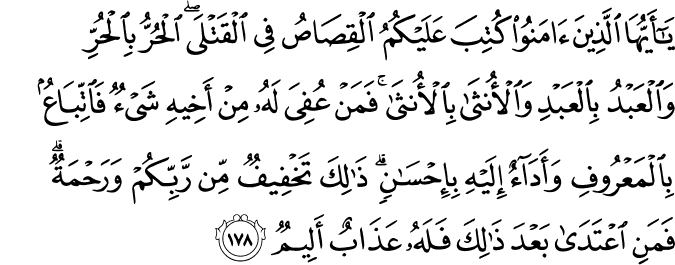 يَـٰٓأَيُّهَا ٱلَّذِينَ ءَامَنُوا۟ كُتِبَ عَلَيْكُمُ ٱلْقِصَاصُ فِى ٱلْقَتْلَى ۖ ٱلْحُرُّ بِٱلْحُرِّ
وَٱلْعَبْدُ بِٱلْعَبْدِ وَٱلْأُنثَىٰ بِٱلْأُنثَىٰ ۚ فَمَنْ عُفِىَ لَهُۥ مِنْ أَخِيهِ شَىْءٌ فَٱتِّبَاعٌۢ
بِٱلْمَعْرُوفِ وَأَدَآءٌ إِلَيْهِ بِإِحْسَـٰنٍ ۗ ذَٰلِكَ تَخْفِيفٌ مِّن رَّبِّكُمْ وَرَحْمَةٌ ۗ
فَمَنِ ٱعْتَدَىٰ بَعْدَ ذَٰلِكَ فَلَهُۥ عَذَابٌ أَلِيمٌ ١٧٨